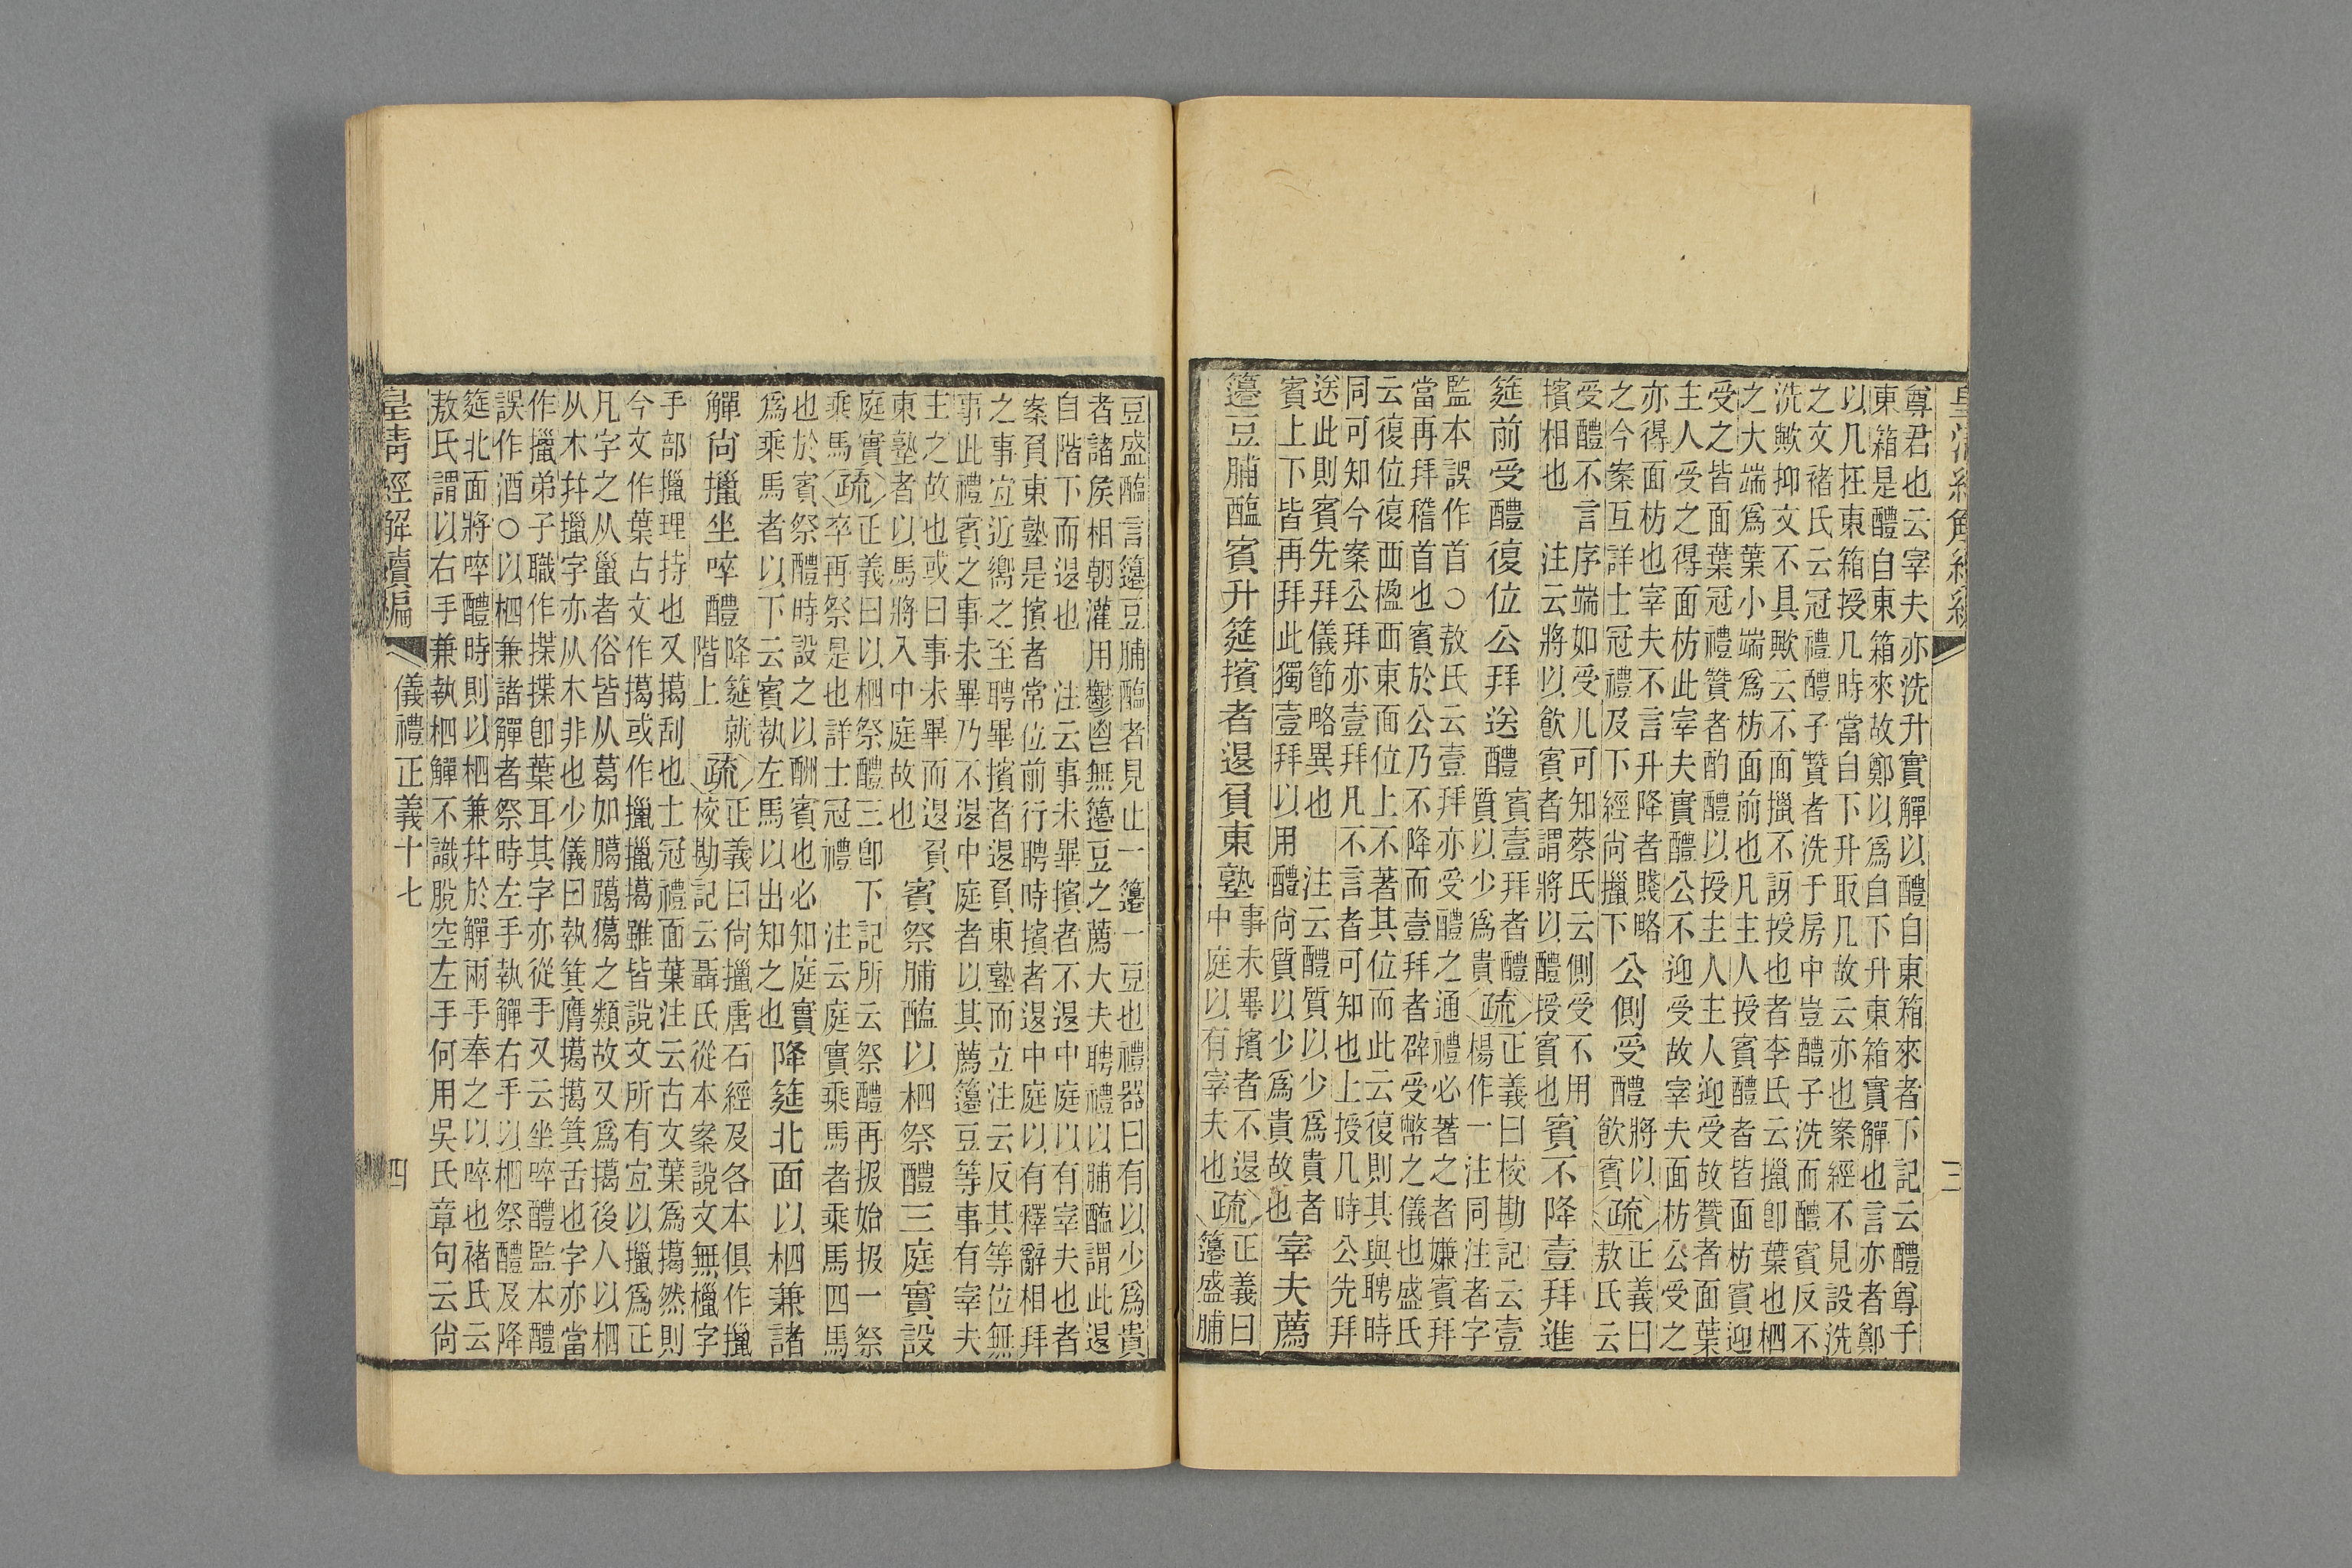 皇清經解續編 三
尊君也云宰夫亦洗升實觶以醴自東箱來者下記云醴尊于
東箱是醴自東箱來故鄭以爲自下升東箱實觶也言亦者鄭
以几在東箱授几時當自下升取几故云亦也案經不見設洗
之文褚氏云冠禮醴子贊者洗于房中豈醴子洗而醴賓反不
洗歟抑文不具歟云不面擸不訝授也者李氏云擸卽葉也柶
之大端爲葉小端爲枋面前也凡主人授賓醴者皆面枋賓迎
受之皆面葉冠禮贊者酌醴以授主人主人迎受故贊者面葉
主人受之得面枋此宰夫實醴公不迎受故宰夫面枋公受之
亦得面枋也宰夫不言升降者賤略
之今案互詳士冠禮及下經尚擸下
公側受醴
將以
飮賓
疏
正義曰
敖氏云
受醴不言序端如受几可知蔡氏云側受不用
擯相也 注云將以飮賓者謂將以醴授賓也
賓不降壹拜進
筵前受醴復位公拜送醴
賓壹拜者醴
質以少爲貴
疏
正義曰校勘記云壹
楊作一注同注者字
監本誤作首○敖氏云壹拜亦受醴之通禮必著之者嫌賓拜
當再拜稽首也賓於公乃不降而壹拜者辟受幣之儀也盛氏
云復位復西楹西東面位上不著其位而此云復則其與聘時
同可知今案公拜亦壹拜凡不言者可知也上授几時公先拜
送此則賓先拜儀節略異也 注云醴質以少爲貴者
賓上下皆再拜此獨壹拜以用醴尚質以少爲貴故也
宰夫薦
籩豆脯醢賓升筵擯者退負東塾
事未畢擯者不退
中庭以有宰夫也
疏
正義曰
籩盛脯
豆盛醢言籩豆脯醢者見止一籩一豆也禮器曰有以少爲貴
者諸侯相朝灌用鬱鬯無籩豆之薦大夫聘禮以脯醢謂此退
自階下而退也 注云事未畢擯者不退中庭以有宰夫也者
案負東塾是擯者常位前行聘時擯者退中庭以有釋辭相拜
之事宜近嚮之至聘畢擯者退負東塾而立注云反其等位無
事此禮賓之事未畢乃不退中庭者以其薦籩豆等事有宰夫
主之故也或曰事未畢而退負
東塾者以馬將入中庭故也
賓祭脯醢以柶祭醴三庭實設
庭實
乘馬
疏
正義曰以柶祭醴三卽下記所云祭醴再扱始扱一祭
卒再祭是也詳士冠禮 注云庭實乘馬者乘馬四馬
也於賓祭醴時設之以酬賓也必知庭實
爲乘馬者以下云賓執左馬以出知之也
降筵北面以柶兼諸
觶尚擸坐啐醴
降筵就
階上
疏
正義曰尚擸唐石經及各本俱作擸
校勘記云聶氏從本案說文無櫤字
手部擸理持也又擖刮也士冠禮面葉注云古文葉爲擖然則
今文作葉古文作擖或作擸擸擖雖皆說文所有宜以擸爲正
凡字之从巤者俗皆从葛如臈躐獦之類故又爲擖後人以柶
从木幷擸字亦从木非也少儀曰執箕膺擖擖箕舌也字亦當
作擸弟子職作揲揲卽葉耳其字亦從手又云坐啐醴監本醴
誤作酒○以柶兼諸觶者祭時左手執觶右手以柶祭醴及降
筵北面將啐醴時則以柶兼幷於觶兩手奉之以啐也褚氏云
敖氏謂以右手兼執柶觶不識脫空左手何用吳氏章句云尚
皇清經解續編 儀禮正義十七 四